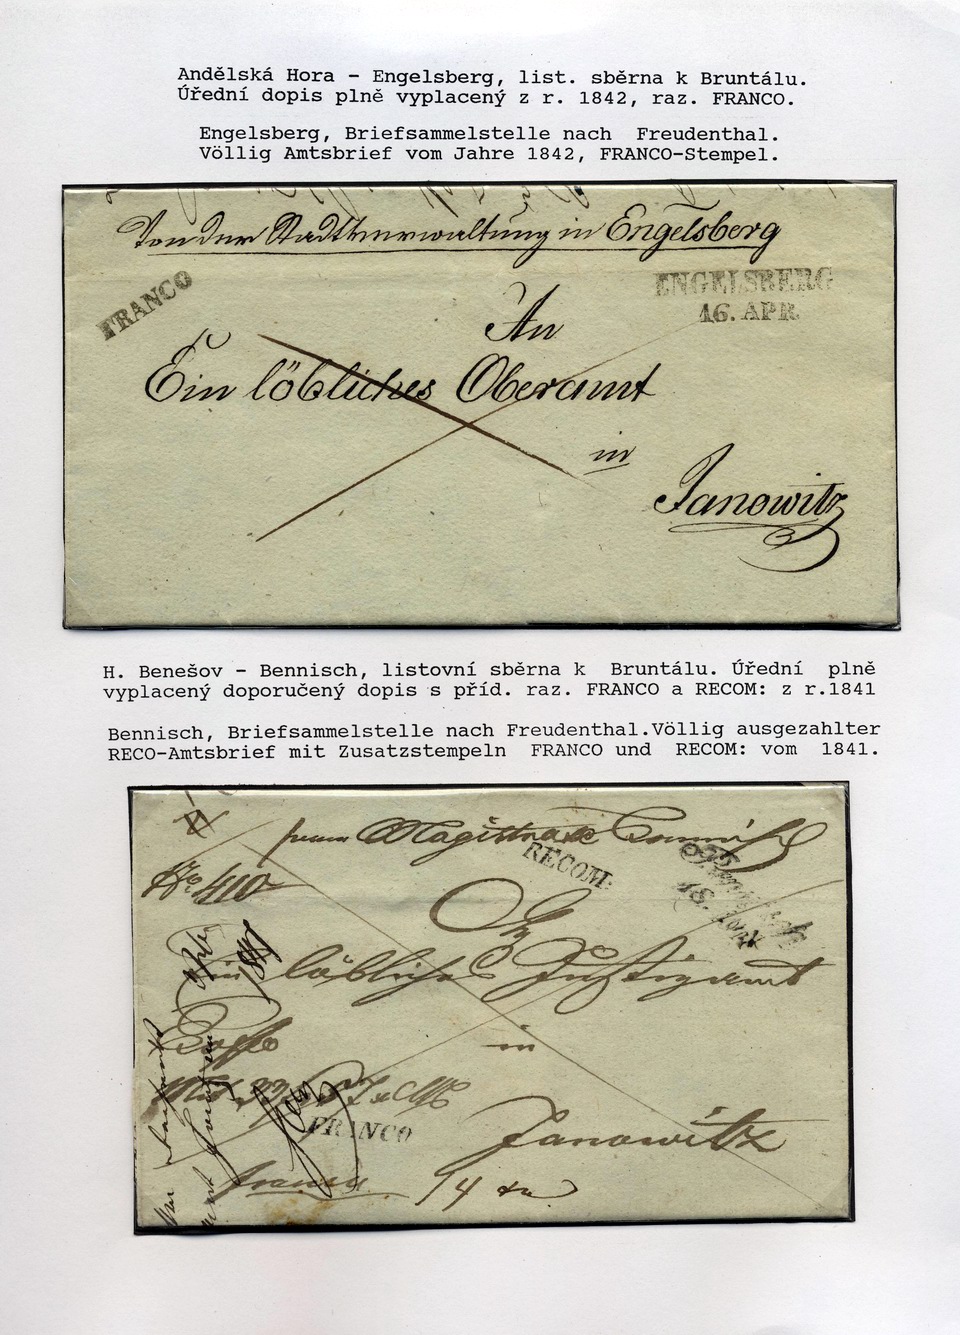 Andělská Hora - Engelsberg, list. sběrna k Bruntálu.
Úřední dopis plně vyplacený z r. 1842, raz. FRANCO.
Engelsberg, Briefsammelstelle nach Freudenthal.
Völlig Amtsbrief vom Jahre 1842, FRANCO-Stempel.
Von der Stadtverwaltung in Engelsberg
FRANCO
ENGELSBERG
16. APR.
An
Ein löbliches Oberamt
in
Janowitz
H. Benešov - Bennisch, listovní sběrna k Bruntálu. Úřední plně
vyplacený doporučený dopis s příd. raz. FRANCO a RECOM: z r.1841
Bennisch, Briefsammelstelle nach Freudenthal.Völlig ausgezahlter
RECO-Amtsbrief mit Zusatzstempeln FRANCO und RECOM: vom 1841.
Magistrate
RECOM:
No. 410
Bennisch
18.
An
löbliches Justizamt
in
FRANCO
Janowitz
franco
14